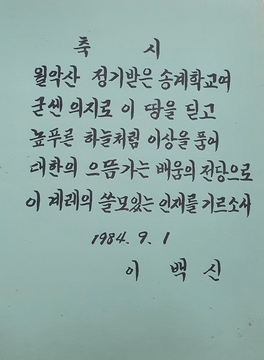 축 시
월악산 정기받은 송계학교여
굳센 의지로 이 땅을 딛고
높푸른 하늘처럼 이상을 품어
대한의 으뜸가는 배움의 전당으로
이 겨레의 쓸모있는 인재를 기르소서
1984. 9. 1
이 백 신